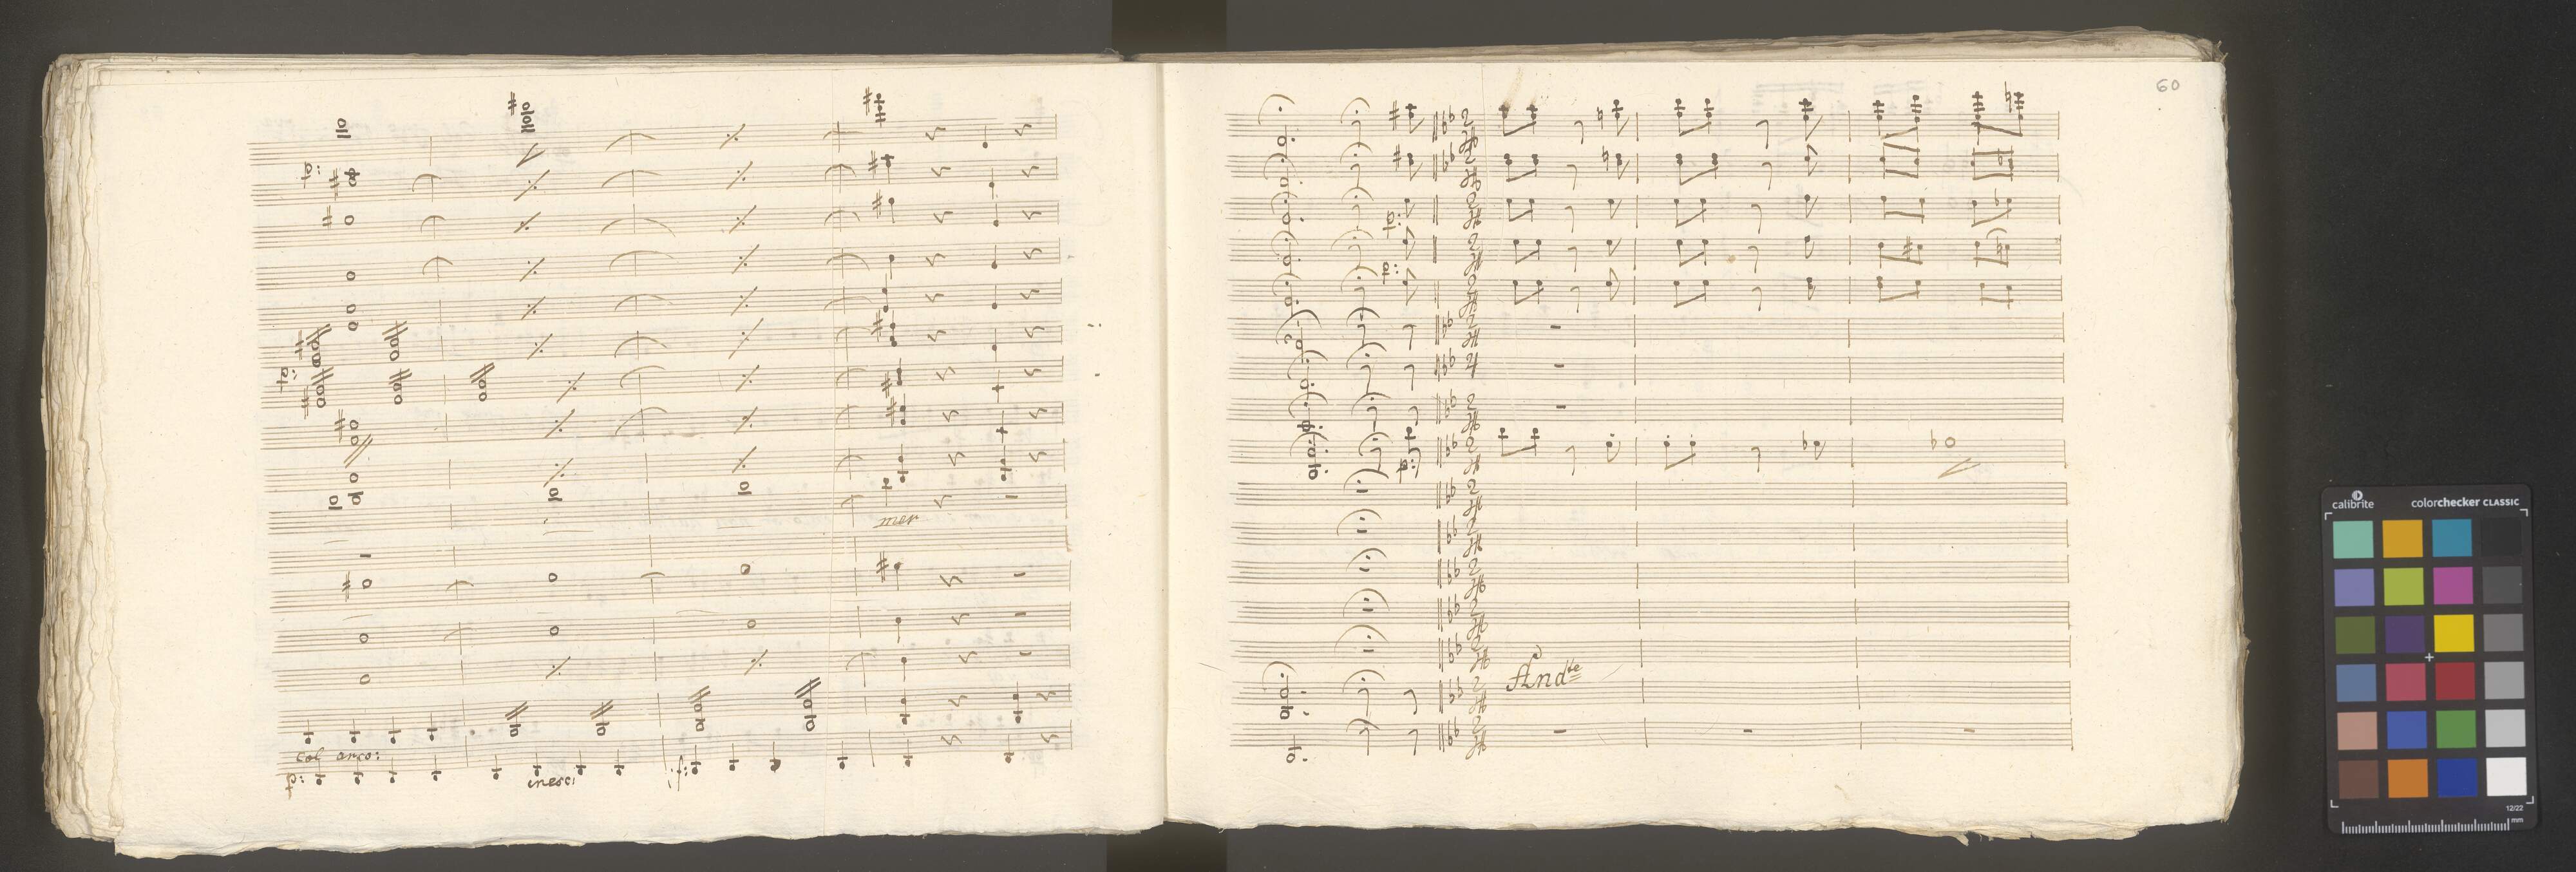 p:
p:
mer
col arco:
p: cresc: f:
60
p:
p:
p:
And.te
calibrite colorchecker CLASSIC
12/22
mm